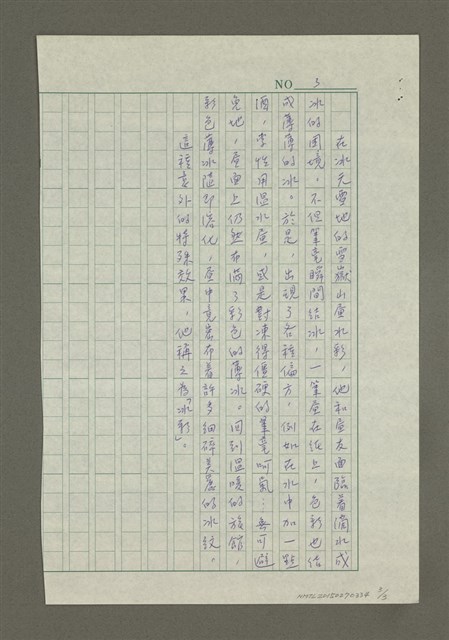 NO 3
在冰天雪地的雪嶽山畫水彩，他和畫友面臨着滴水成
冰的困境，不但筆毫瞬間結冰，一筆畫在紙上，色彩也結
成薄薄的冰。於是，出現了各種偏方，例如在水中加一點
酒，索性用溫水畫，或是對凍得僵硬的筆毫呵氣…無可避
免地，畫面上仍然布滿了彩色的薄冰。回到溫暖的旅館，
彩色薄冰隨即溶化，畫中竟密布着許多細碎美麗的冰紋。
這種意外的特殊效果，他稱之為「冰彩」。
NMTL20150270334 3/3